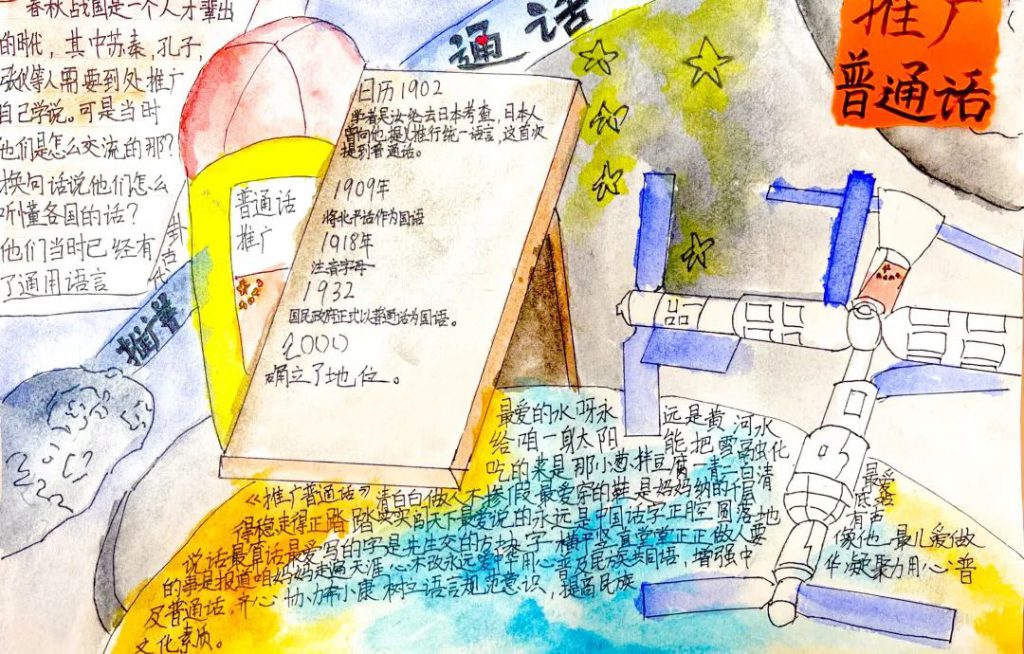 春秋战国是一个人才辈出
的时代，其中苏秦，孔子，
张仪等人需要到处推广
自己学说。可是当时
他们是怎么交流的那？
换句话说他们怎么
听懂各国的话？
他们当时已经有
了通用语言
通话
推广
普通话
普通话
推广
推广普
日历1902
学者吴汝纶去日本考查，日本人
曾向他提议推行统一语言，这首次
提到普通话。
1909年
将北平话作为国语
1918年
注音字母
1932
国民政府正式以普通话为国语。
2000
确立了地位。
最爱的水呀永远是黄河水
给咱一身太阳能把雪融化
吃的菜是那小葱拌豆腐一青二白清
《推广普通话》清白白做人不掺假最爱穿的鞋是妈妈纳的千层底站
得稳走得正踏踏实实闯天下最爱说的永远是中国话字正腔圆落地有声
说话最算话最爱写的字是先生交的方块字一横平竖直堂堂正正做人要像他一最儿爱做
的事是报道咱妈妈走遍天涯心不改永远爱中华用心普及民族共同语，增强中华凝聚力用心普
及普通话，齐心协力奔小康树立语言规范意识，提高民族
文化素质。